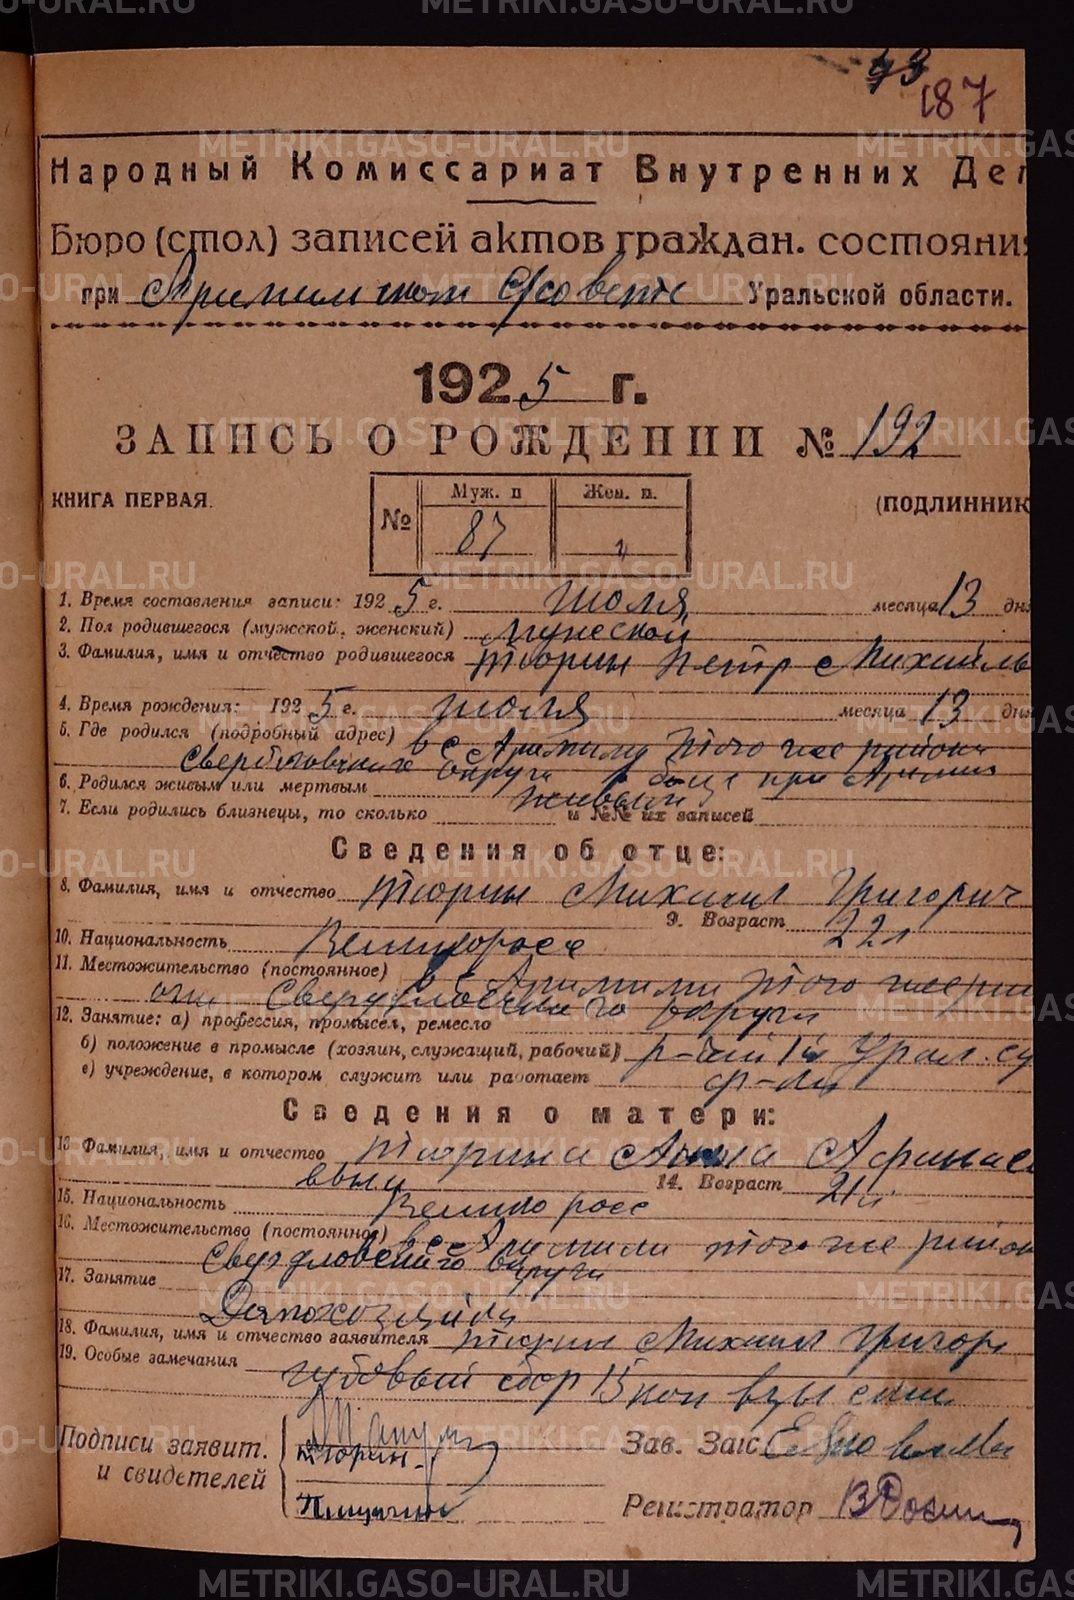 93
187
Народный Комиссариат Внутренних Дел
Бюро (стол) записей актов граждан. состояния
при Арамильском с/совете Уральской области.
1925 г.
ЗАПИСЬ О РОЖДЕНИИ № 192
КНИГА ПЕРВАЯ. (ПОДЛИННИК
№ Муж. п Жен. п.
87
1. Время составления записи: 1925 г. июля месяца 13 дня
2. Пол родившегося (мужской, женский) Мужской
3. Фамилия, имя и отчество родившегося Тюрин Петр Михайль
4. Время рождения: 1925 г. июля месяца 13 дня
5. Где родился (подробный адрес) в с Арамили того же района
Свердловского округа при
6. Родился живым или мертвым живым
7. Если родились близнецы, то сколько и №№ их записей
Сведения об отце:
8. Фамилия, имя и отчество Тюрин Михаил Григорич
9. Возраст 22
10. Национальность Великоросс
11. Местожительство (постоянное) в с Арамили того же рай
она Свердловского округа
12. Занятие: а) профессия, промысел, ремесло
б) положение в промысле (хозяин, служащий, рабочий) Урал. су
в) учреждение, в котором служит или работает ф-ки
Сведения о матери:
13 Фамилия, имя и отчество Тюрина Анна Афанась
евна 14. Возраст 21
15. Национальность Великоросс
16. Местожительство (постоянное) в с Арамили того же район
Свердловского округа
17. Занятие
Домохозяйка
18. Фамилия, имя и отчество заявителя Тюрин Михаил Григорь
19. Особые замечания гербовый сбор 15 коп взыскан
Подписи заявит. Тюрин Зав. Загс
и свидетелей
Регистратор
METRIKI.GASO-URAL.RU